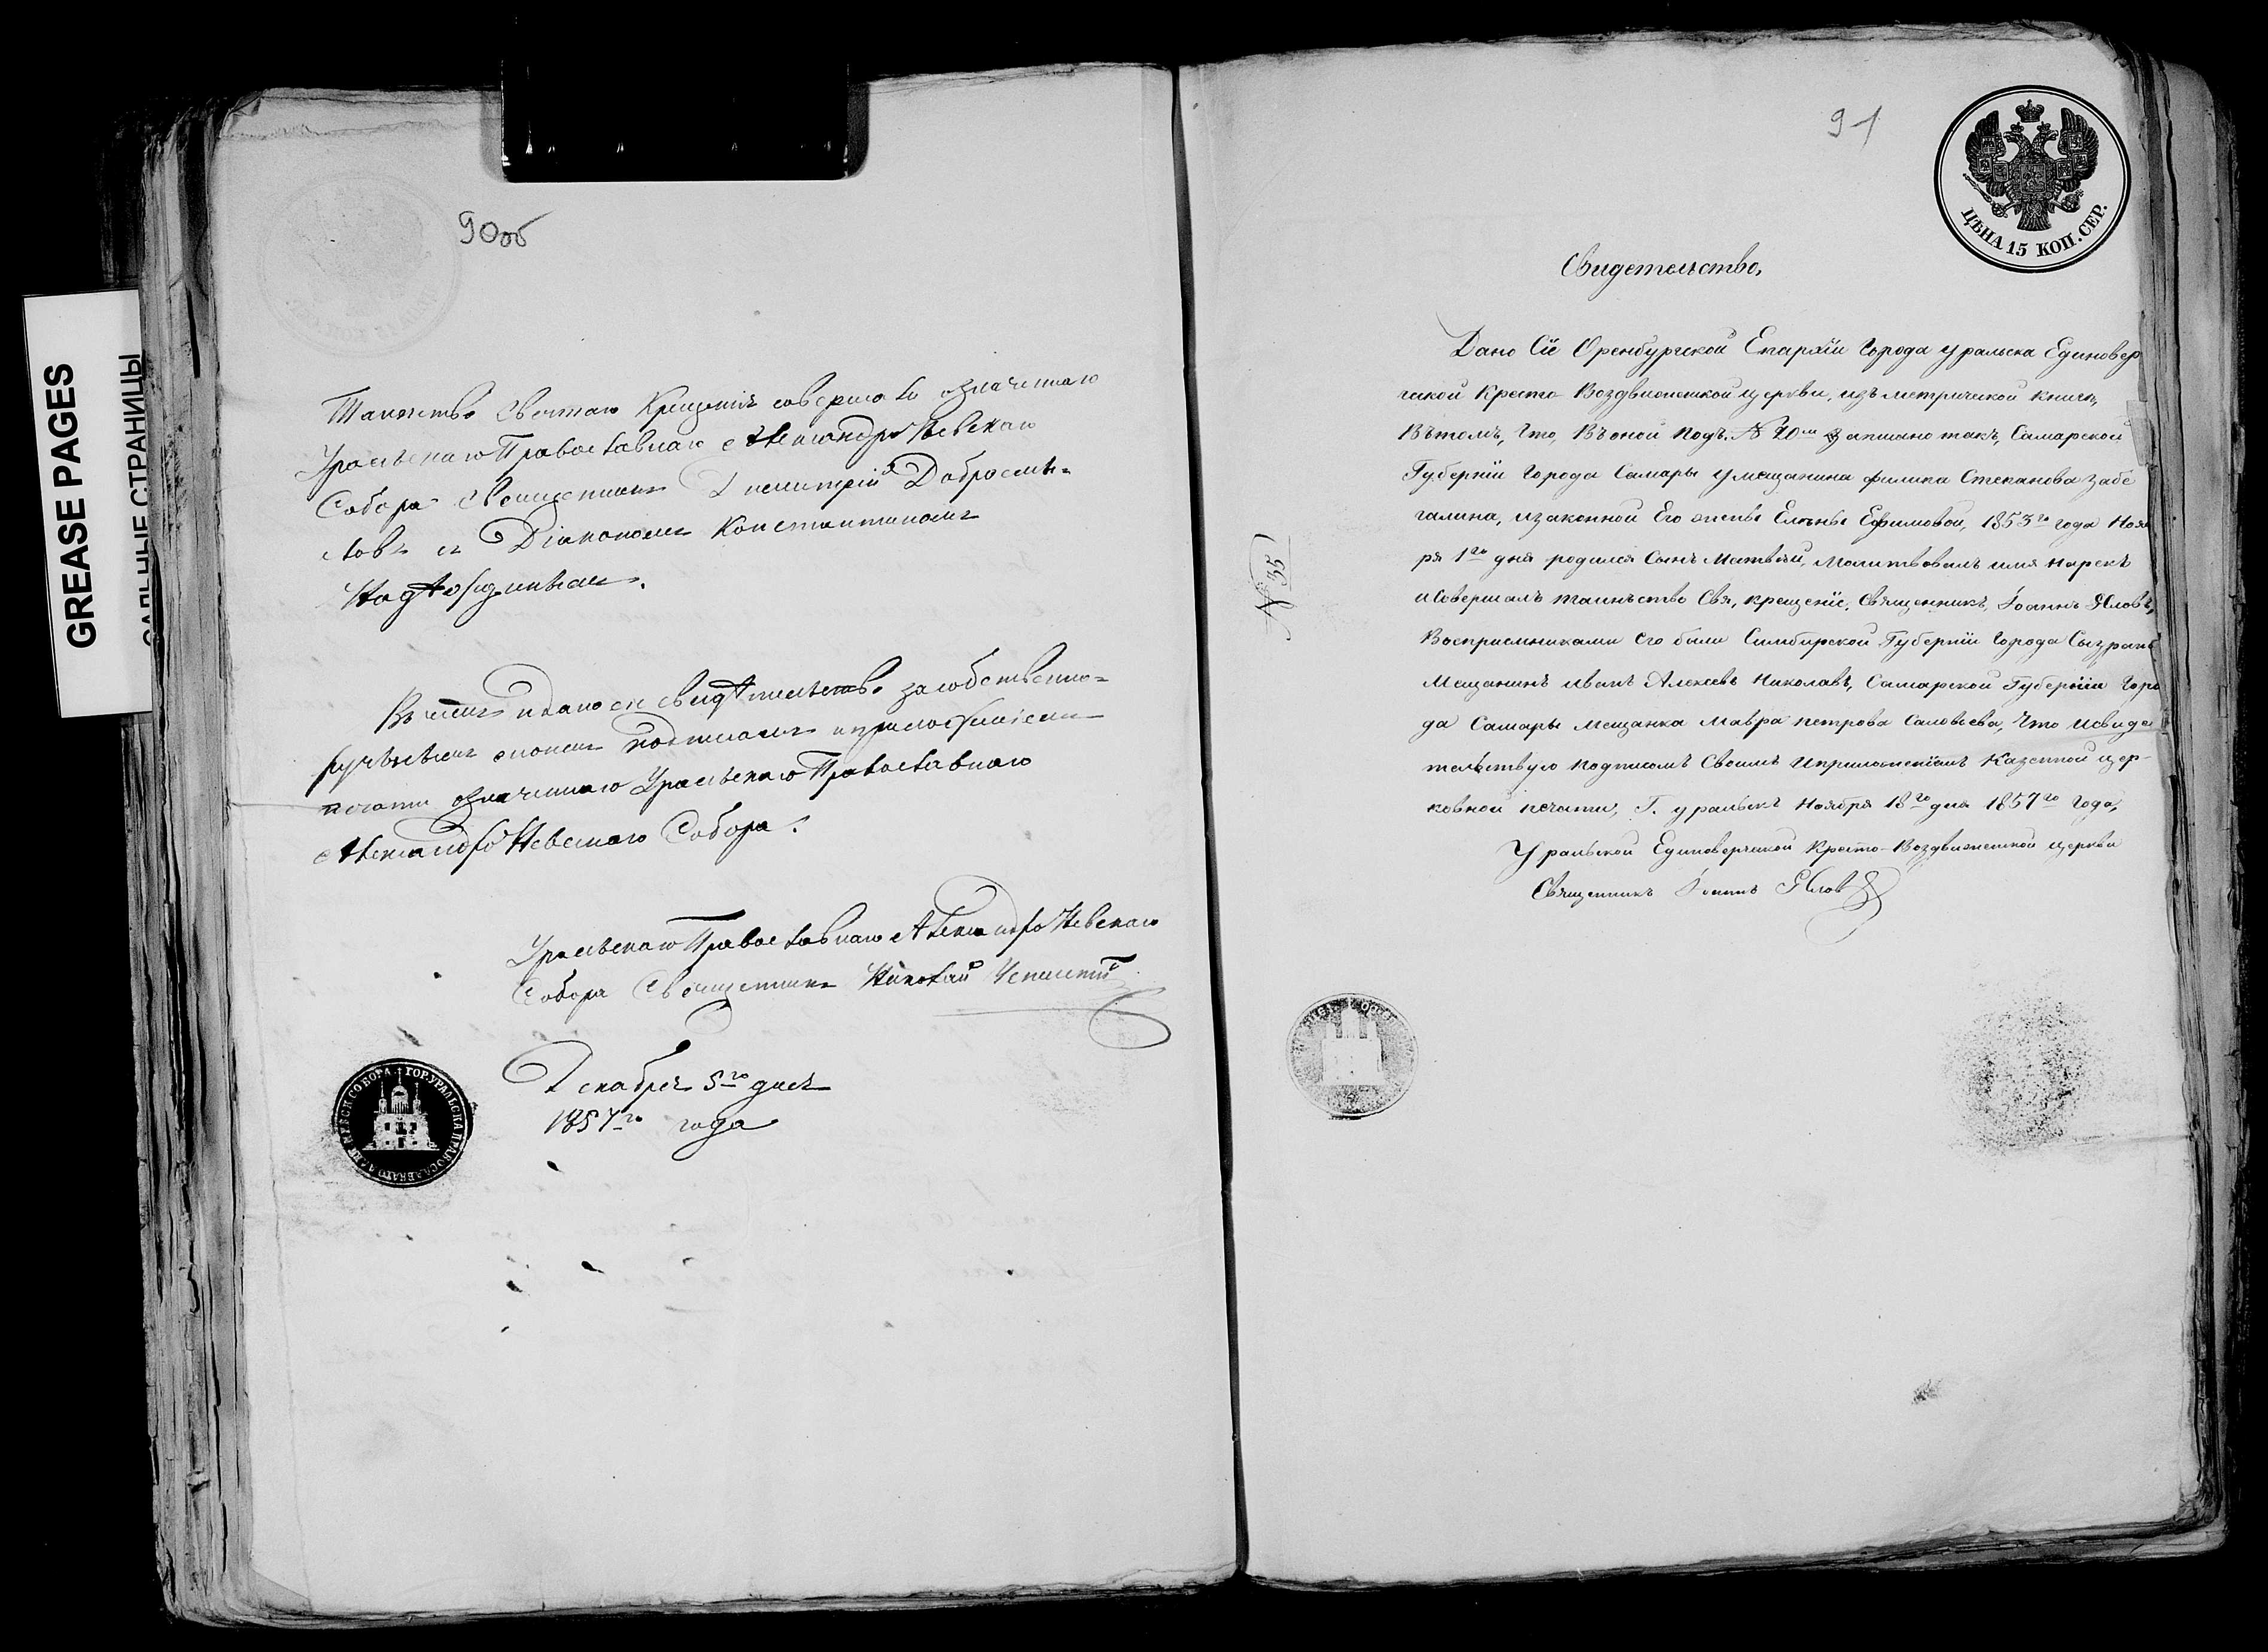 GREASE PAGES
САЛЬНЫЕ СТРАНИЦЫ
90об
Таинство Святаго Крещенія совершалъ означеннаго
Уральскаго Православнаго Александро Невскаго
Собора Священникъ Димитрій Добросмы-
словъ съ Діакономъ Константиномъ
Надеждинымъ.
Въ чемъ и дано сіе свидѣтельство за собственно-
ручнымъ моимъ подписомъ и приложеніемъ
печати означеннаго Уральскаго Православнаго
Александро Невскаго Собора.
Уральскаго Православнаго Александро Невскаго
Собора Священникъ Николай
Декабря 5го дня
1857го года
ГОР. УРАЛЬСКА ПРАВОСЛАВНАГО НЕВСК СОБОРА
91
ЦѢНА 15 КОП. СЕР.
Свидетельство,
Дано Сіе Оренбургской Епархіи Города Уральска Единовер
ческой Кресто-Воздвиженской церкви, изъ метрической книги,
Вътомъ, Что, Въоной Подъ. № 20мъ Записано такъ, Самарской
Губерніи Города Самары Умещанина филипа Степанова Забе
галина, изаконной Его жены Елены Ефимовой, 1853го года Нояб
ря 1го дня родился Сынъ Матвѣй, Молитвовалъ имя нарекъ
и Совершалъ таинъство Свя, крещеніе, Священникъ, Іоаннъ Яловъ,
Восприемниками его были Симбирской Губерніи Города Сызрани
Мещанинъ Иванъ Алексевъ Николавъ, Самарской Губерніи Горо
да Самары Мещанка Мавра Петрова Саловьева, Что и Свиде
тельствую Подписомъ Своимъ и приложеніемъ Казенной цер-
ковной печати, Г. Уральскъ Ноября 18го дня 1857го Года,
Уральской Единоверческой Кресто-Воздвиженской церкви
Священникъ Іоаннъ Яловъ
№ 35